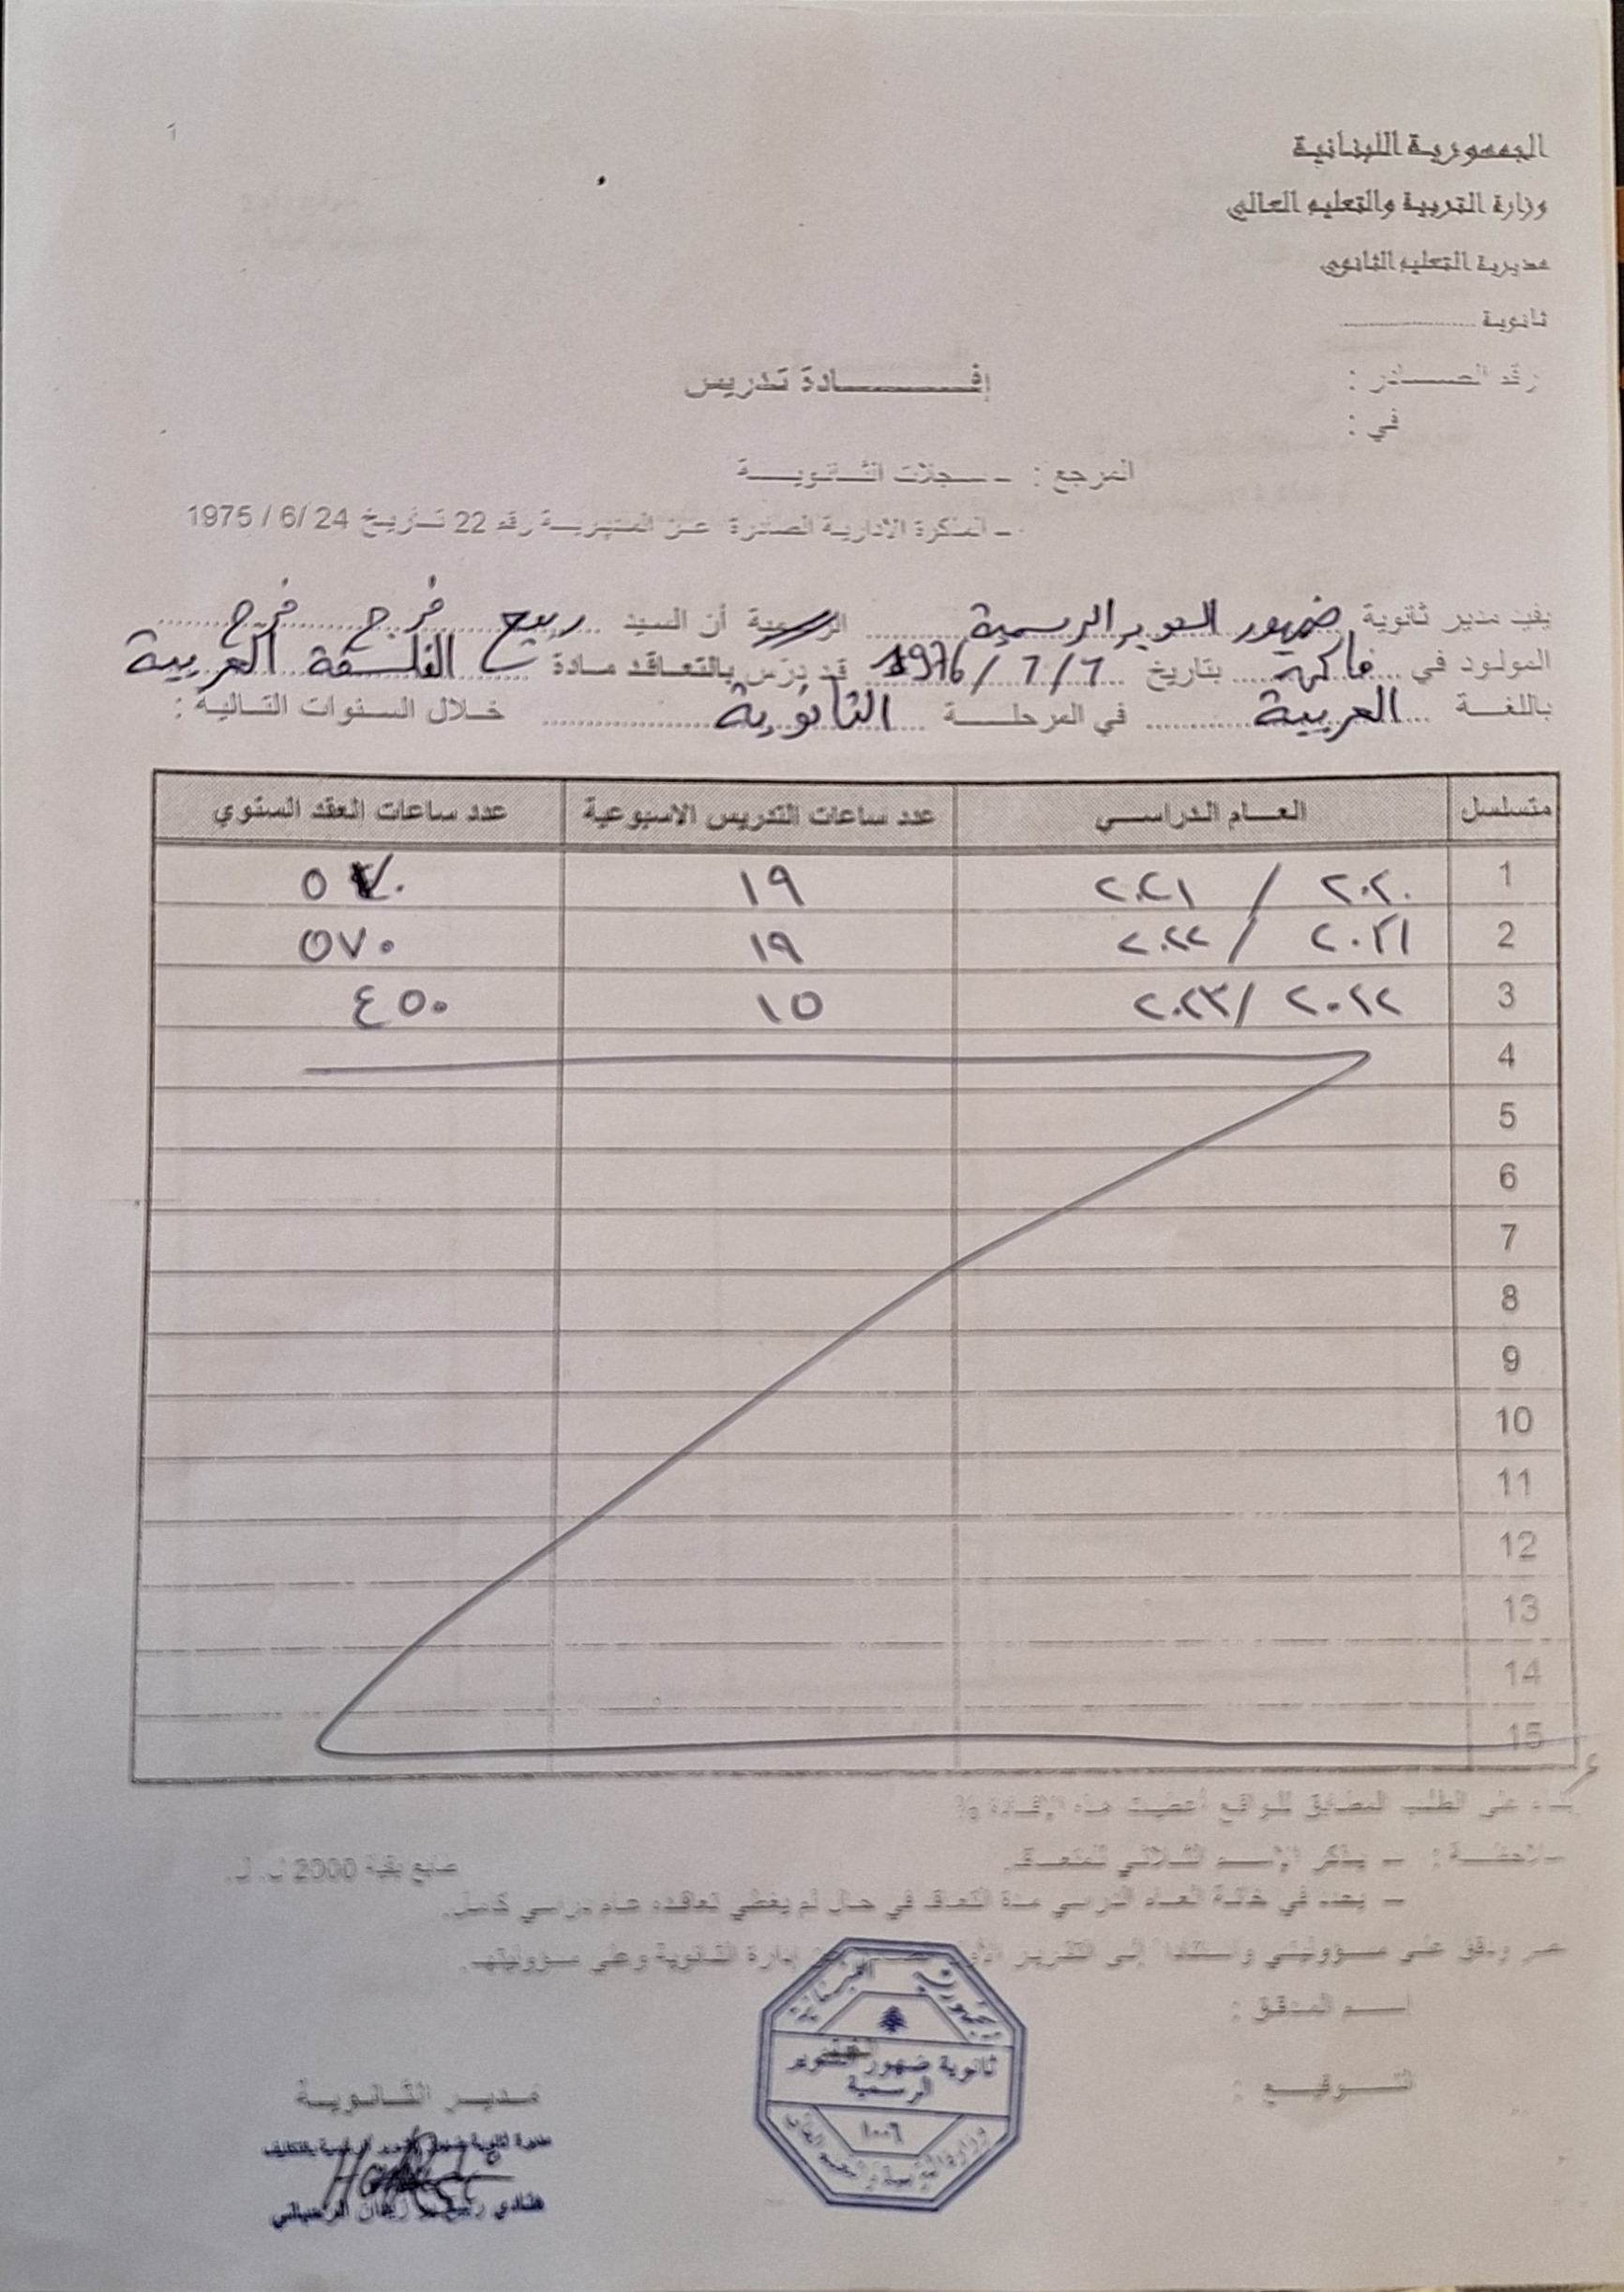 الجمهورية اللبنانية
وزارة التربية والتعليم العالي
مديرية التعليم الثانوي
ثانوية ....................
رقم الصـــادر :
في :
إفـــــــادة تدريس
المرجع : ـ سـجلات الثـانويـــة
ـ المذكرة الادارية الصادرة عن المديرية رقم 22 تـاريخ 24 /6 / 1975
يفيد مدير ثانوية ضهور الشوير الرسمية الرسمية أن السيد ربيع فرج فرج
المولود في فاكهة بتاريخ ٦/٦/ 1976 قد درّس بالتعاقد مـادة الفلسفة العربية
باللغـــة العربية في المرحلـــة الثانوية خـلال السنوات التـاليـة :
متسلسل العـــام الدراســـي عدد ساعات التدريس الاسبوعية عدد ساعات العقد السنوي
1 ٢٠٢٠ / ٢٠٢١ ١٩ ٥٧٠
2 ٢٠٢١ / ٢٠٢٢ ١٩ ٥٧٠
3 ٢٠٢٢ / ٢٠٢٣ ١٥ ٤٥٠
4
5
6
7
8
9
10
11
12
13
14
15
بنـاء على الطلب المطابق للواقع أعطيت هذه الإفـادة %
ملاحظـــة : ـ يـذكر الإسـم الثـلاثي للمتعـاقد.
طابع بقيمة 2000 ل. ل.
ـ يحدد في خانة العـام الدراسي مدة التعاقد في حال لم يغطي تعاقده عـام دراسي كامل.
ودقق على مسؤوليتي واستنادا إلى التقرير إدارة الثانوية وعلى مسؤوليتها.
اسـم المدقق :
التـــوقيـــع :
الجمهورية اللبنانية
ثانوية ضهور الشوير
الرسمية
١٠٠٦
وزارة التربية والتعليم العالي
مـديـر الثـانويـــة
مديرة ثانوية ضهور الشوير الرسمية بالتكليف